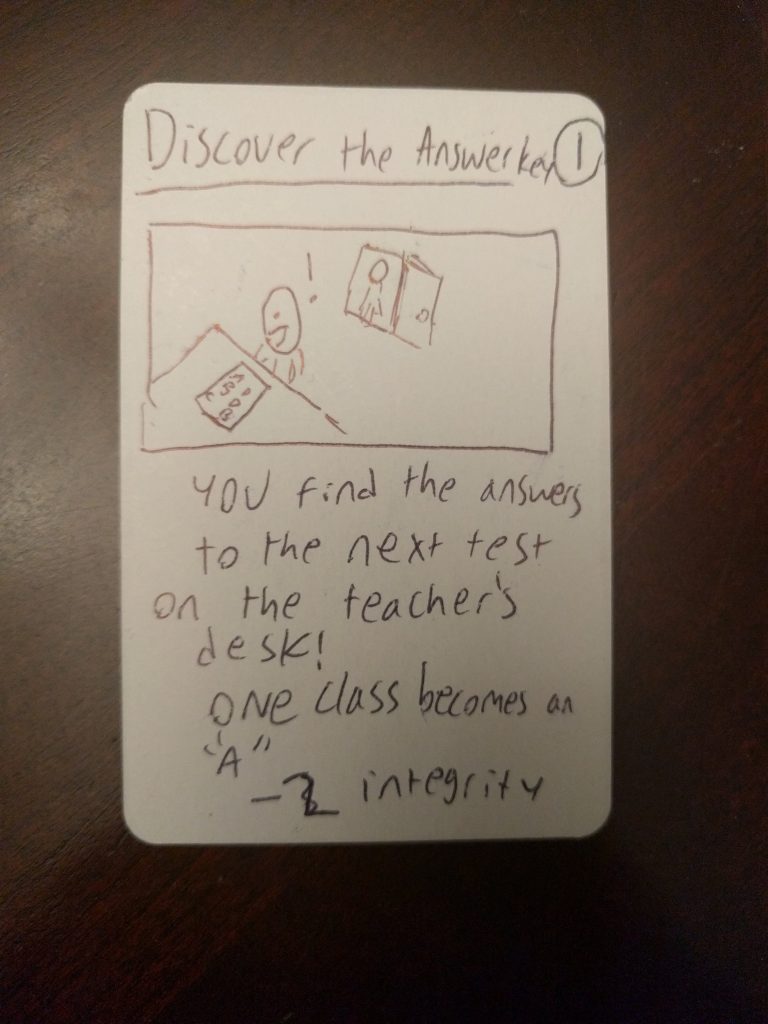 Discover the Answer key 1
!
YOU find the answers
to the next test
on the teacher's
desk!
ONE class becomes an
"A"
-2 integrity